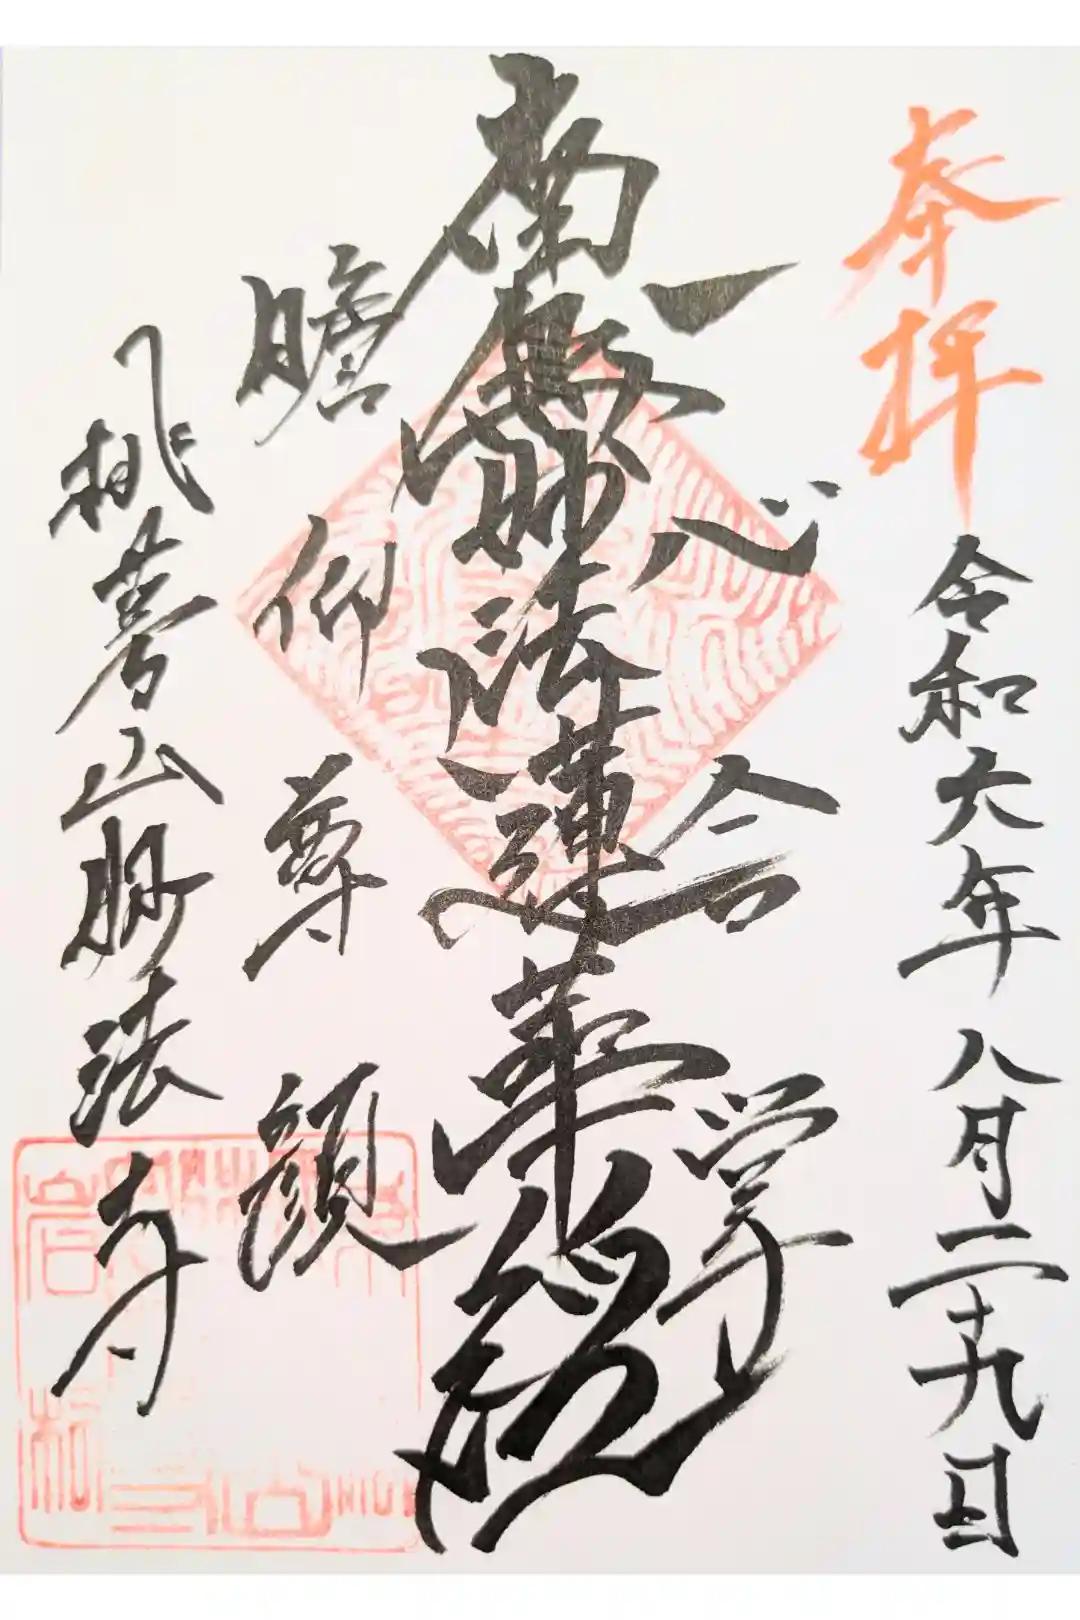 奉拝
令和六年八月二十九日
一心合掌
南無妙法蓮華経
瞻仰尊顔
山妙法寺